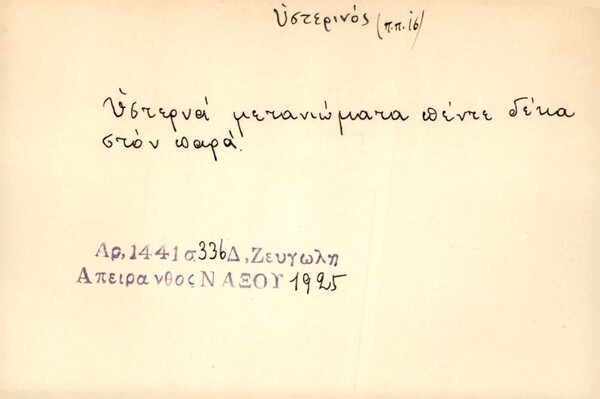 Ὑστερινός (π.π. ιϐ)
Ὑστερνά μετανιώματα πέντε δέκα
στόν παρά.
Αρ, 1441 σ 336 Δ, Ζευγωλη
Απειρανθος ΝΑΞΟΥ 1925